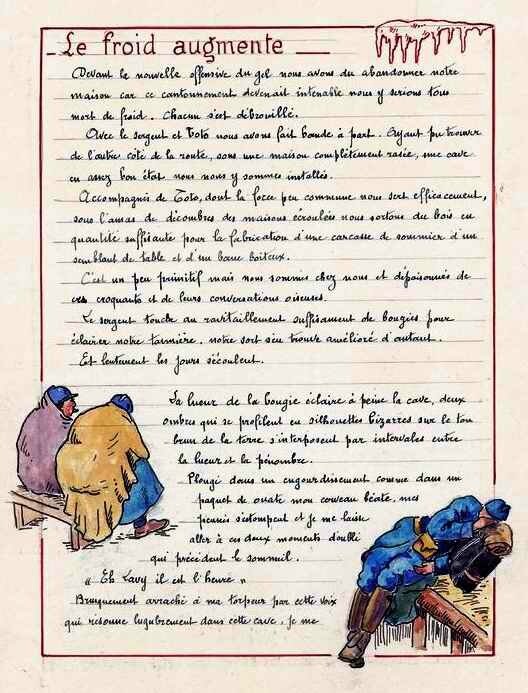 Le froid augmente
Devant la nouvelle offensive du gel nous avons du abandonner notre
maison car ce cantonnement devenait intenable nous y serions tous
mort de froid. Chacun s'est débrouillé.
Avec le sergent et Toto nous avons fait bande à part. Ayant pu trouver
de l'autre côté de la route, sous une maison complètement rasée, une cave
en assez bon état nous nous y sommes installés.
Accompagnés de Toto, dont la force peu commune nous sert efficacement,
sous l'amas de décombres des maisons écroulées nous sortons du bois en
quantité suffisante pour la fabrication d'une carcasse de sommier d'un
semblant de table et d'un banc boiteux.
C'est un peu primitif mais nous sommes chez nous et dépoisonnés de
ces croquants et de leurs conversations oiseuses.
Le sergent touche au ravitaillement suffisament de bougies pour
éclairer notre tannière, notre sort s'en trouve amélioré d'autant.
Et lentement les jours s'écoulent.
La lueur de la bougie éclaire à peine la cave, deux
ombres qui se profilent en silhouettes bizarres sur le ton
brun de la terre s'interposent par intervales entre
la lueur et la pénombre.
Plongé dans un engourdissement comme dans un
paquet de ouate mon cerveau béate, mes
pensées s'estompent et je me laisse
aller à ces doux moments d'oubli
qui précèdent le sommeil.
"Eh Lavy il est l'heure"
Brusquement arraché à ma torpeur par cette voix
qui resonne lugubrement dans cette cave, je me